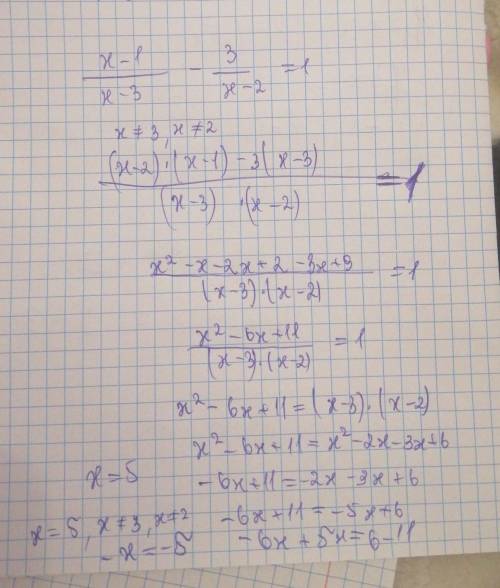 x-1/x-3 - 3/x-2 = 1
x≠3, x≠2
(x-2)·(x-1)-3(x-3)/(x-3)·(x-2) = 1
x²-x-2x+2-3x+9/(x-3)·(x-2) = 1
x²-6x+11/(x-3)·(x-2) = 1
x²-6x+11=(x-3)·(x-2)
x²-6x+11=x²-2x-3x+6
-6x+11=-2x-3x+6
-6x+11=-5x+6
-6x+5x=6-11
-x=-5
x=5
x=5, x≠3, x≠2